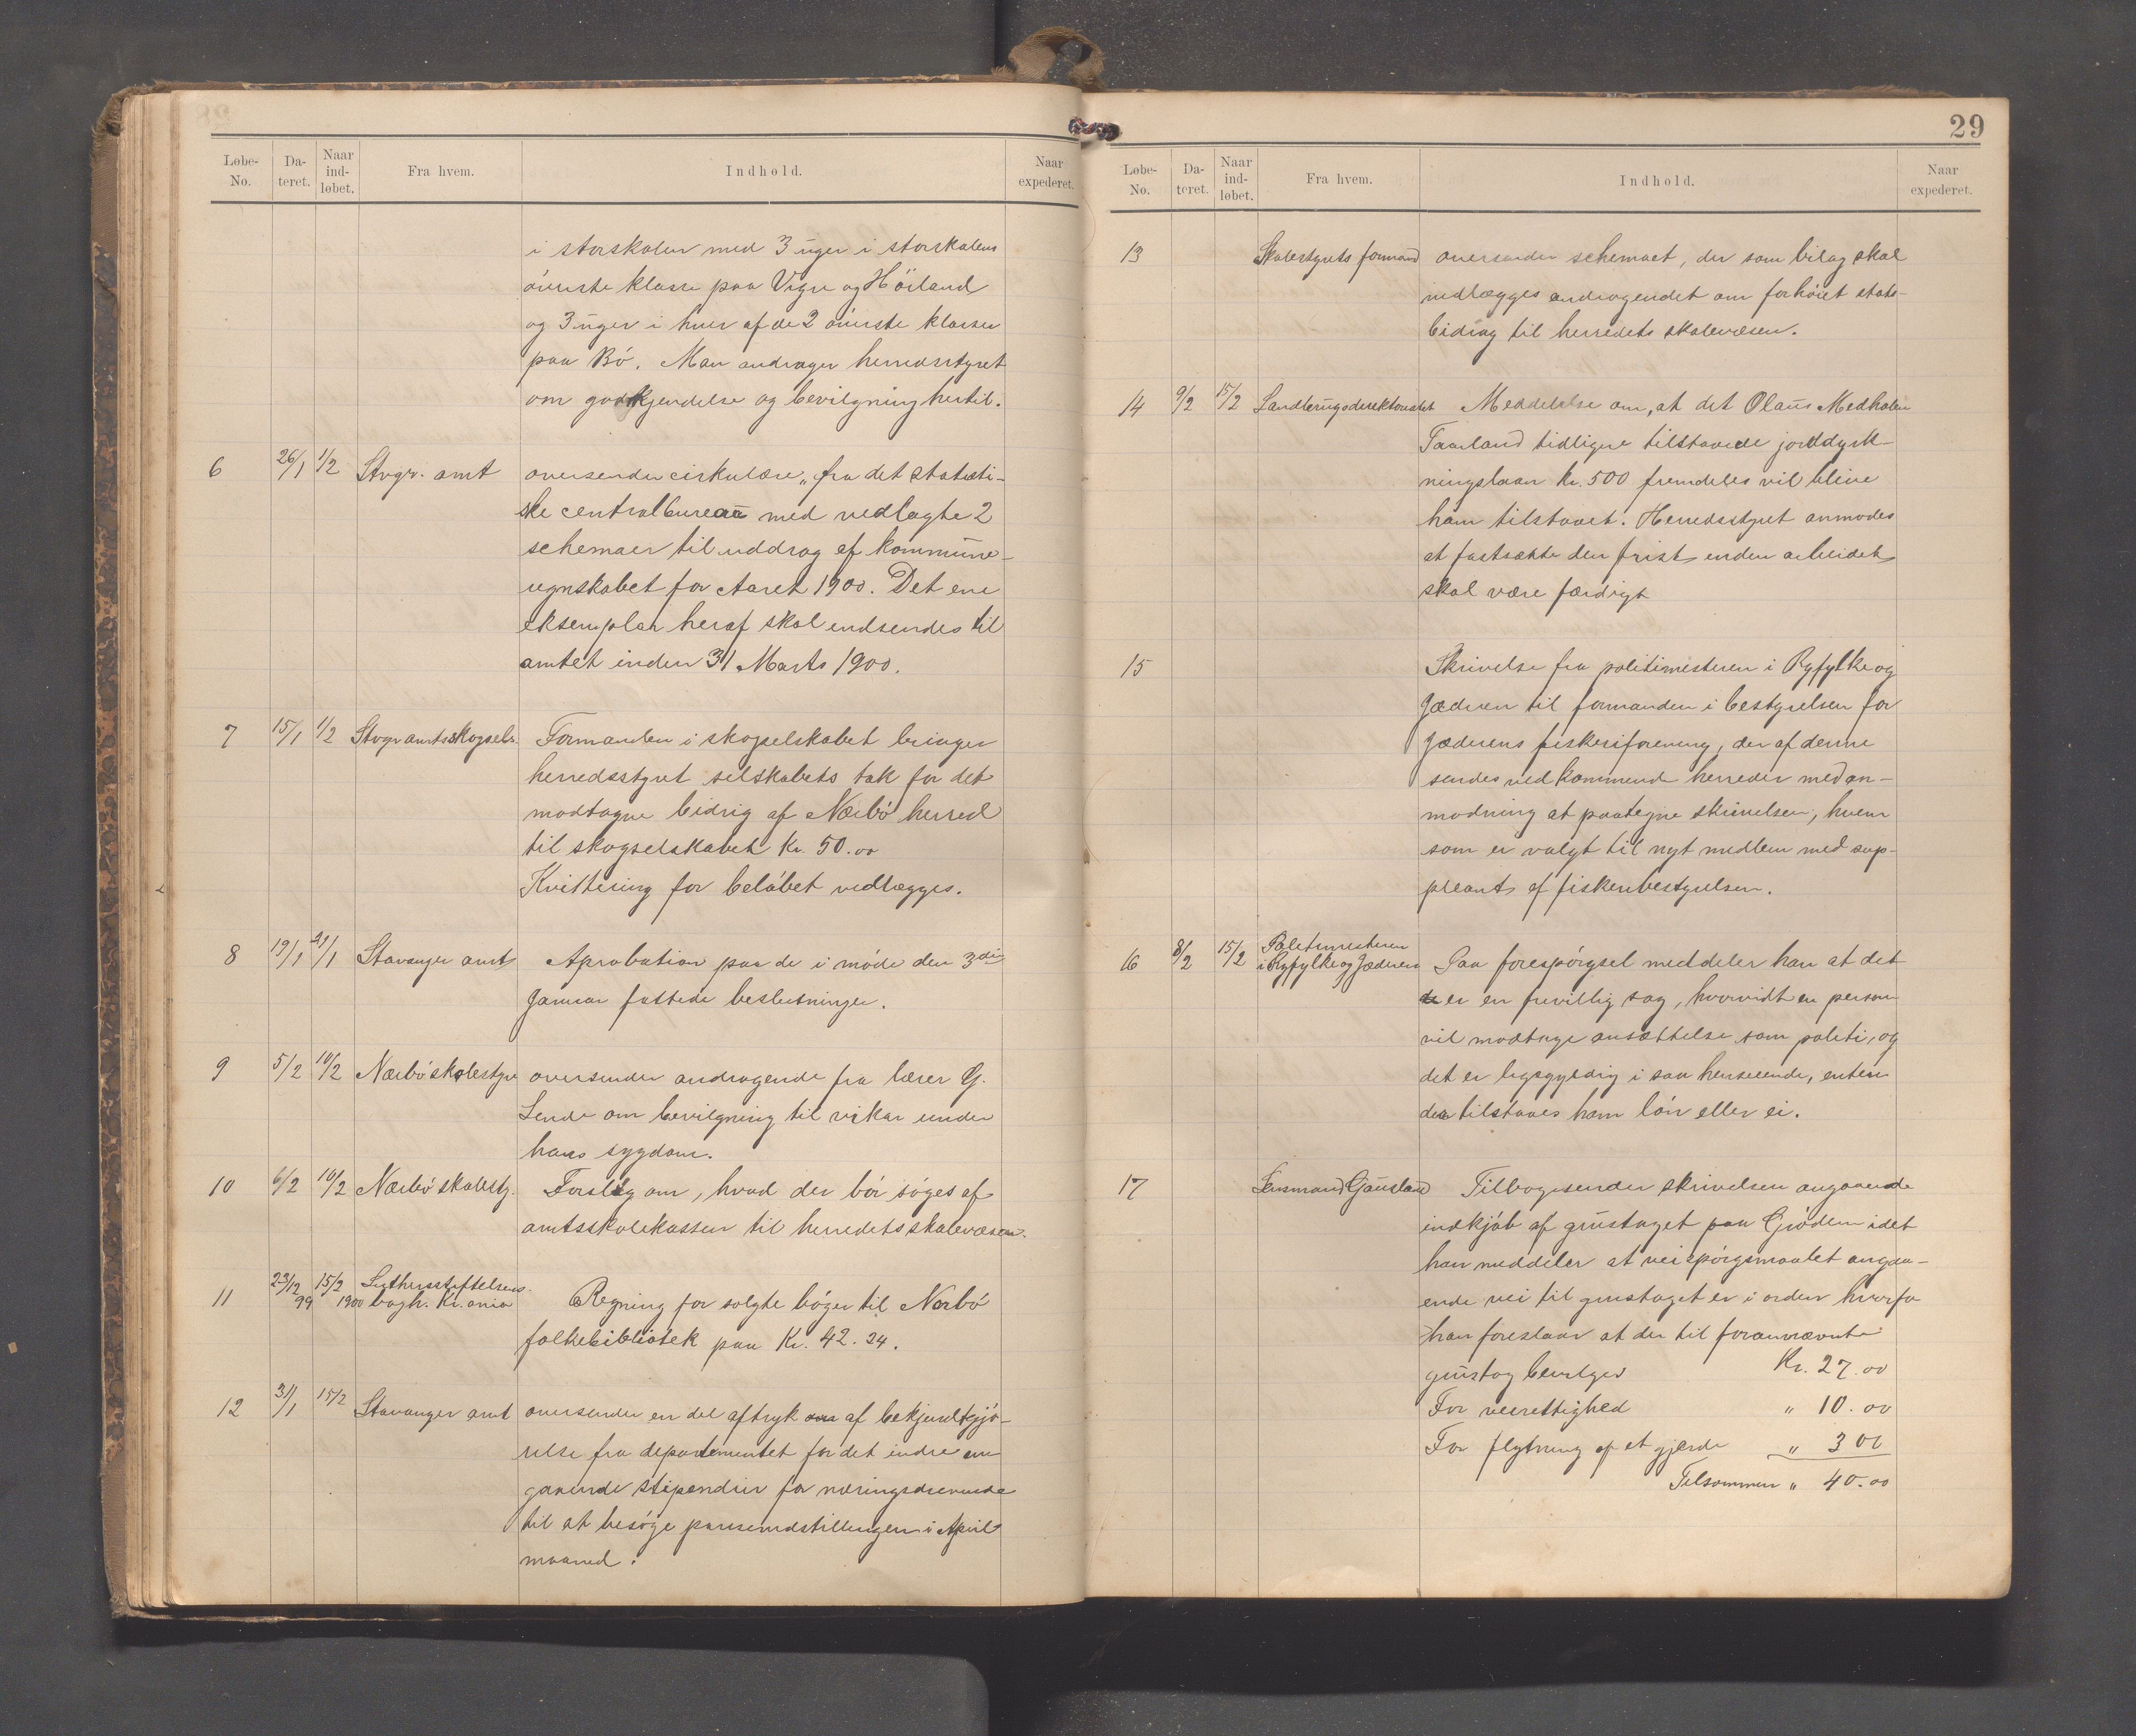 Løbe-No. Da-teret. Naar ind-løbet. Fra hvem. Indhold. Naar expederet.
i storskolen med 3 uger i storskolens
øverste klasse paa Vigre og Höiland
og 3 uger i hver af de 2 øverste klasser
paa Bö. Man andrager herredsstyret
om godkjendelse og bevilgning hertil.
6 26/1 1/2 Stvgr. amt oversender cirkulære „fra det statisti-
ske centralbureau med vedlagte 2
schemaer til uddrag af kommune-
regnskabet for Aaret 1900. Det ene
eksemplar heraf skal indsendes til
amtet inden 31 Marts 1900.
7 15/1 1/2 Stvgr amtsskogselsk. Formanden i skogselskabet bringer
herredsstyret selskabets tak for det
modtagne bidrig af Nærbö herred
til skogselskabet Kr. 50.00
Kvittering for belöbet vedlægges.
8 19/1 21/1 Stavanger amt Aprobation paa de i möde den 3die
Januar fattede beslutninger.
9 5/2 10/2 Nærbö skolestyre oversender andragende fra lærer G.
Lende om bevilgning til vikar under
hans sygdom.
10 6/2 10/2 Nærbö skolesty. Forslag om, hvad der bör söges af
amtsskolekassen til herredets skolevæsen.
11 23/12 99 15/2 1900 Lutherstiftelsens bogh. Kr.ania Regning for solgte böger til Nærbö
folkebibliotek paa Kr. 42.24.
12 31/1 15/2 Stavanger amt oversender en del aftryk af bekjendtgjö-
relse fra departementet for det indre an
gaaende stipendier for næringsdrivende
til at besöge pariserudstillingen i April
maaned.
29
Løbe-No. Da-teret. Naar ind-løbet. Fra hvem. Indhold. Naar expederet.
13 Skolestyrets formand oversender schemaet, der som bilag skal
vedlægges andragendet om forhöiet stats-
bidrag til herredets skolevæsen.
14 9/2 15/2 Landbrugsdirektoratet Meddelelse om, at det Olaus Medholen
Taarland tidligere tilstaaede jorddyrk-
ningslaan Kr. 500 fremdeles vil blive
ham tilstaaet. Herredsstyret anmodes
at fastsætte den frist, inden arbeidet
skal være færdigt
15 Skrivelse fra politimesteren i Ryfylke og
Jæderen til formanden i bestyrelsen for
Jæderens fiskeriforening, der af denne
sendes vedkommende herreder med an-
modning at paategne skrivelsen, hvem
som er valgt til nyt medlem med sup-
pleant af fiskeribestyrelsen.
16 8/2 15/2 Politimesteren i Ryfylke og Jæderen Paa forespörgsel meddeler han at det
er en frivillig sag, hvorvidt en person
vil modtage ansættelse som politi, og
det er ligegyldig i saa henseende, enten
der tilstaaes ham lön eller ei.
17 Lensmand Gausland Tilbagesender skrivelsen angaaende
indkjöb af grustaget paa Gröden idet
han meddeler at veispörgsmaalet angaa-
ende vei til grustaget er i orden hvorfor
han foreslaar at der til forannævnte
grustag bevilges Kr. 27.00
For veirettighed " 10.00
For flytning af et gjerde " 3 00
Tilsammen " 40.00